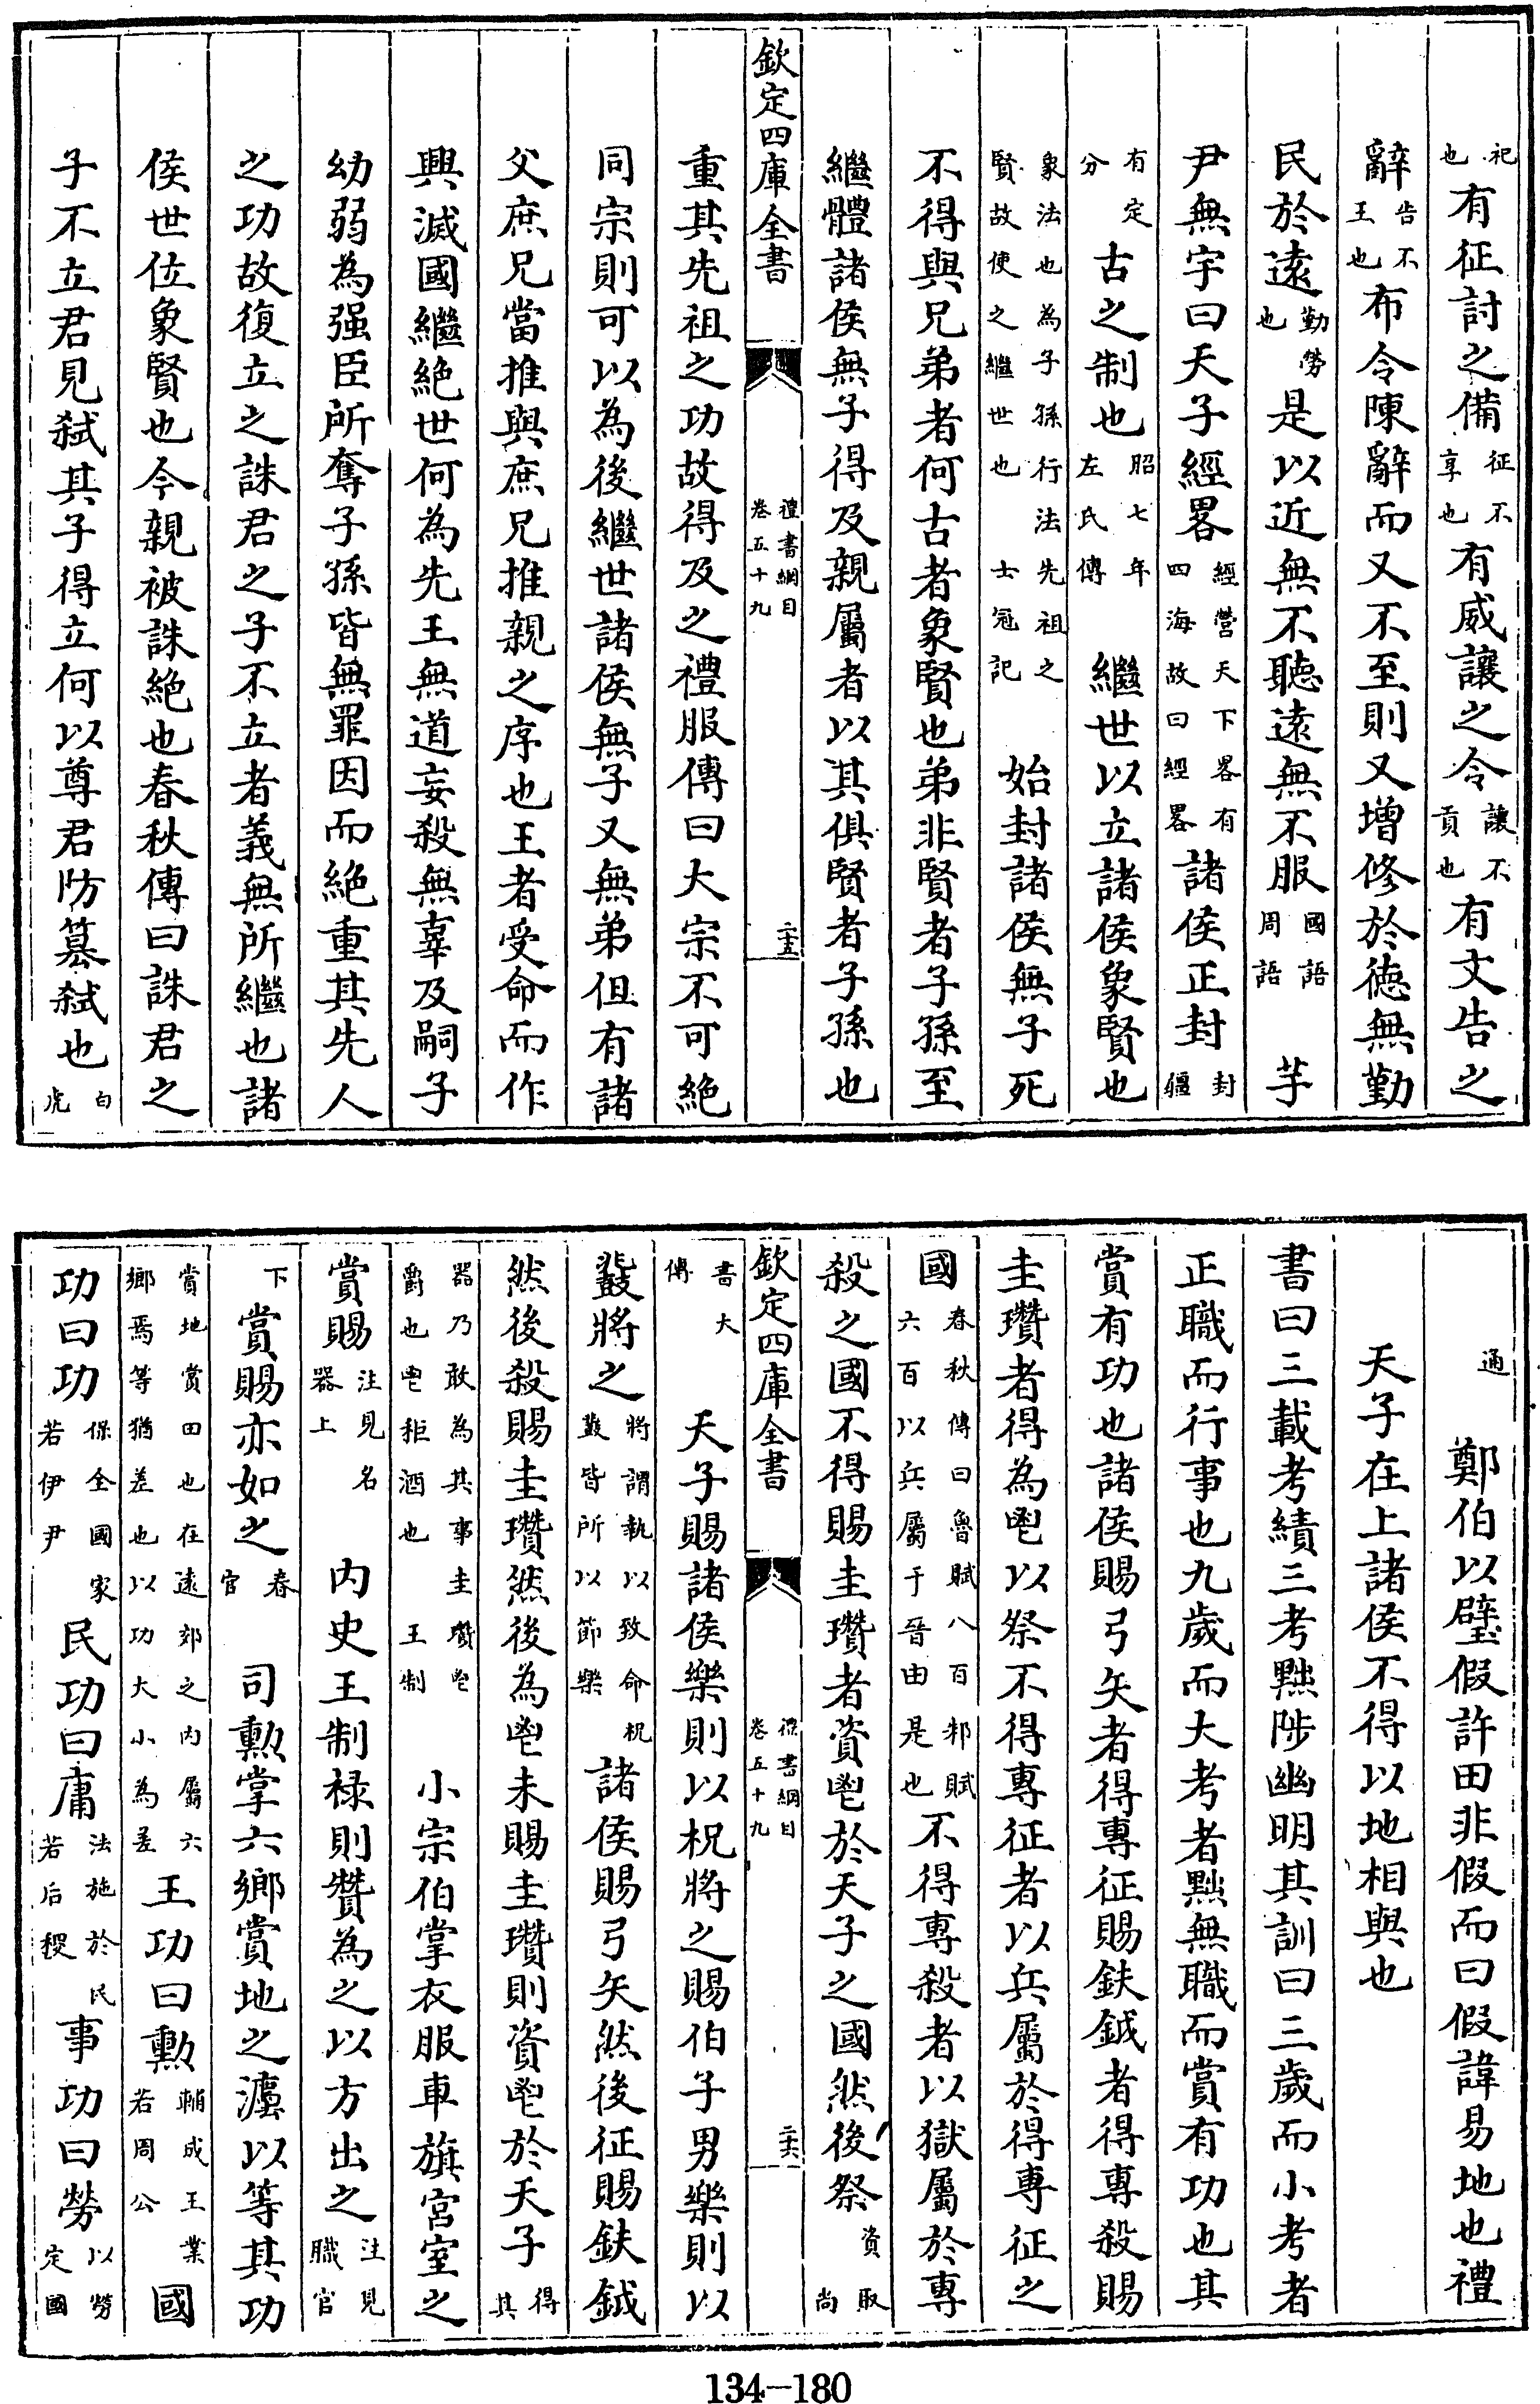 祀也有征討之備征不享也有威讓之令讓不貢也有文告之
辭告不王也布令陳辭而又不至則又增修於德無勤
民於遠勤勞也是以近無不聽遠無不服國語周語　芋
尹無宇曰天子經畧經營天下畧有四海故曰經畧諸侯正封封疆
有定分古之制也昭七年左氏傳　繼世以立諸侯象賢也
象法也為子孫行法先祖之賢故使之繼世也士冠記　始封諸侯無子死
不得與兄弟者何古者象賢也弟非賢者子孫至
繼體諸侯無子得及親屬者以其俱賢者子孫也
欽定四庫全書　禮書綱目卷五十九　二十五
重其先祖之功故得及之禮服傳曰大宗不可絶
同宗則可以為後繼世諸侯無子又無弟但有諸
父庶兄當推與庶兄推親之序也王者受命而作
興滅國繼絶世何為先王無道妄殺無辜及嗣子
幼弱為强臣所奪子孫皆無罪因而絶重其先人
之功故復立之誅君之子不立者義無所繼也諸
侯世位象賢也今親被誅絶也春秋傳曰誅君之
子不立君見弑其子得立何以尊君防簒弑也白虎
通　鄭伯以璧假許田非假而曰假諱易地也禮
天子在上諸侯不得以地相與也
書曰三載考績三考黜陟幽明其訓曰三歲而小考者
正職而行事也九歲而大考者黜無職而賞有功也其
賞有功也諸侯賜弓矢者得專征賜鈇鉞者得專殺賜
圭瓚者得為鬯以祭不得專征者以兵屬於得專征之
國春秋傳曰魯賦八百邾賦六百以兵屬于晉由是也不得專殺者以獄屬於專
殺之國不得賜圭瓚者資鬯於天子之國然後祭資取尚
欽定四庫全書　禮書綱目卷五十九　二十六
書大傳　天子賜諸侯樂則以柷將之賜伯子男樂則以
鼗將之將謂執以致命柷鼗皆所以節樂諸侯賜弓矢然後征賜鈇鉞
然後殺賜圭瓚然後為鬯未賜圭瓚則資鬯於天子得其
器乃敢為其事圭瓚鬯爵也鬯秬酒也王制　小宗伯掌衣服車旗宮室之
賞賜注見名器上　内史王制祿則贊為之以方出之注見職官
下　賞賜亦如之春官　司勳掌六鄉賞地之灋以等其功
賞地賞田也在遠郊之内屬六鄉焉等猶差也以功大小為差王功曰勳輔成王業若周公國
功曰功保全國家若伊尹民功曰庸法施於民若后稷事功曰勞以勞定國
134-180